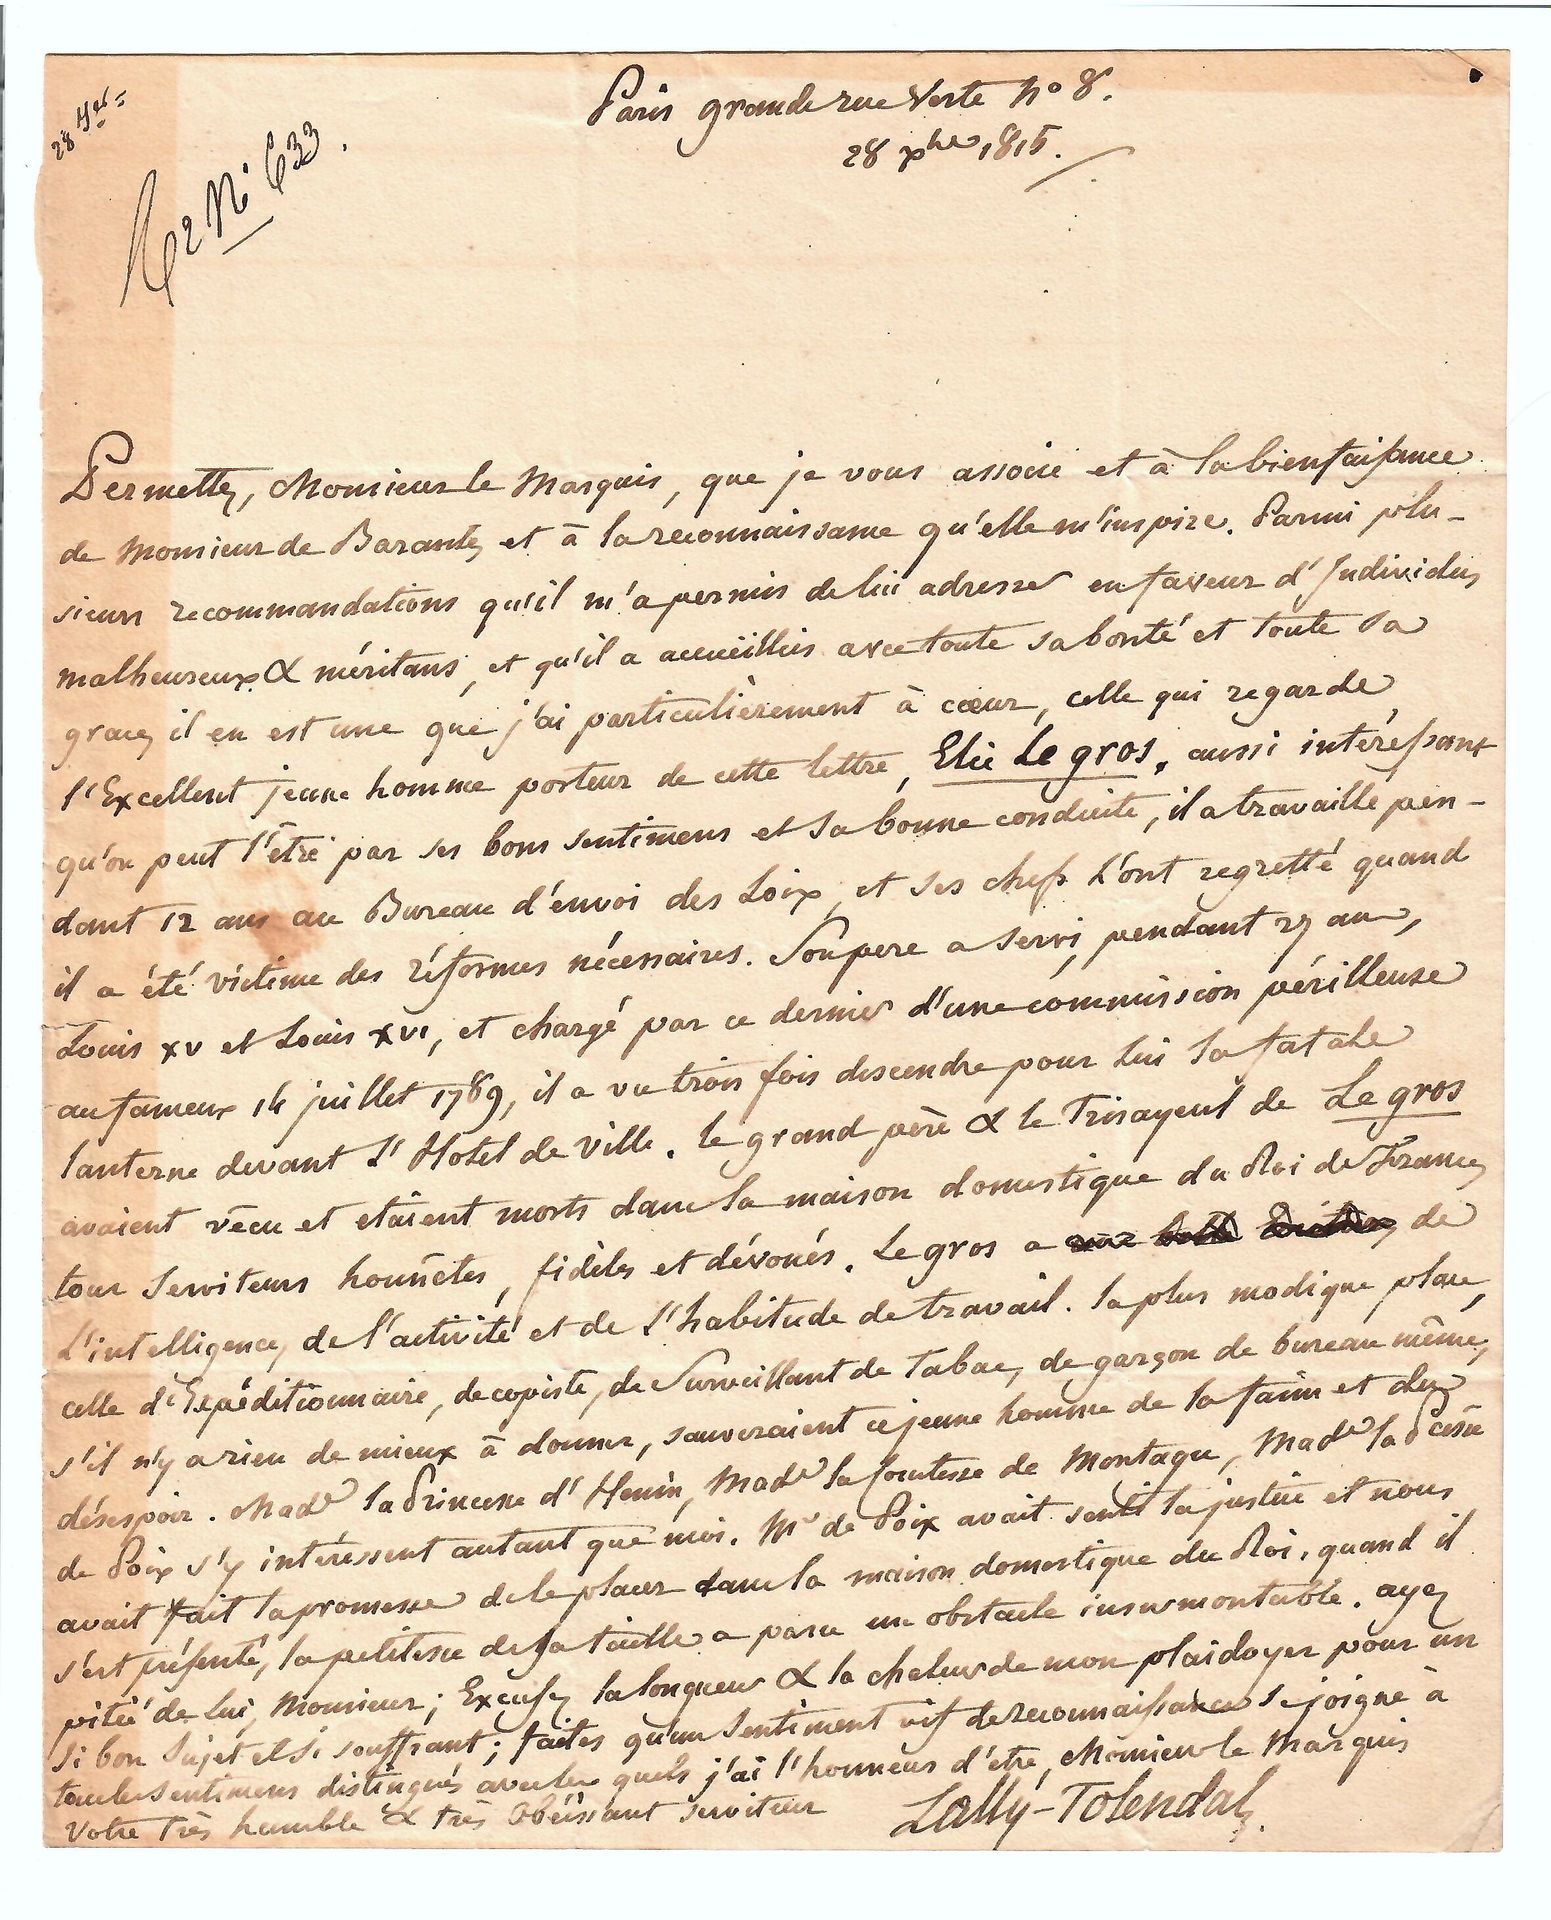 Paris grande rue Verte No 8.
28 xbre 1815.
28 9bre
No 633.
Permettez, Monsieur le Marquis, que je vous associe et à la bienfaisance
de Monsieur de Barante, et à la reconnaissance qu'elle m'inspire. Parmi plu-
sieurs recommandations qu'il m'a permis de lui adresser en faveur d'Individus
malheureux & méritans, et qu'il a accueillies avec toute sa bonté et toute sa
grace, il en est une que j'ai particulièrement à cœur, celle qui regarde
l'Excellent jeune homme porteur de cette lettre, Elie Le gros, aussi intéressant
qu'on peut l'être par ses bons sentimens et sa bonne conduite, il a travaillé pen-
dant 12 ans au Bureau d'envoi des Loix, et ses chefs l'ont regretté quand
il a été victime des réformes nécessaires. Son pere a servi, pendant 27 ans,
Louis XV et Louis XVI, et chargé par ce dernier d'une commission périlleuse
au fameux 14 juillet 1789, il a vu trois fois descendre pour lui la fatale
lanterne devant l'Hotel de ville. le grand père & le Trisayeul de Le gros
avaient vécu et etaient morts dans la maison domestique du Roi de France,
tous serviteurs honnêtes, fidèles et dévoués. Le gros a de
l'intelligence, de l'activité et de l'habitude de travail. la plus modique place,
celle d'Expéditionnaire, de copiste, de Surveillant de Tabac, de garçon de bureau même,
s'il n'y a rien de mieux à donner, sauveraient ce jeune homme de la faim et du
désespoir. Made la Princesse d'Henin, Made la Comtesse de Montagu, Made la Pcesse
de Poix s'y intéressent autant que moi. Mr de Poix avait senti la justice et nous
avait fait la promesse de le placer dans la maison domestique du Roi, quand il
s'est présenté, la petitesse de sa taille a paru un obstacle insurmontable. ayez
pitié de lui, Monsieur; Excusez la longueur & la chaleur de mon plaidoyer pour un
si bon sujet et si souffrant; faites qu'un sentiment vif de reconnaissance se joigne à
tous les sentimens distingués avec les quels j'ai l'honneur d'etre, Monsieur le Marquis
Votre très humble & très Obéissant serviteur Lally-Tolendal.